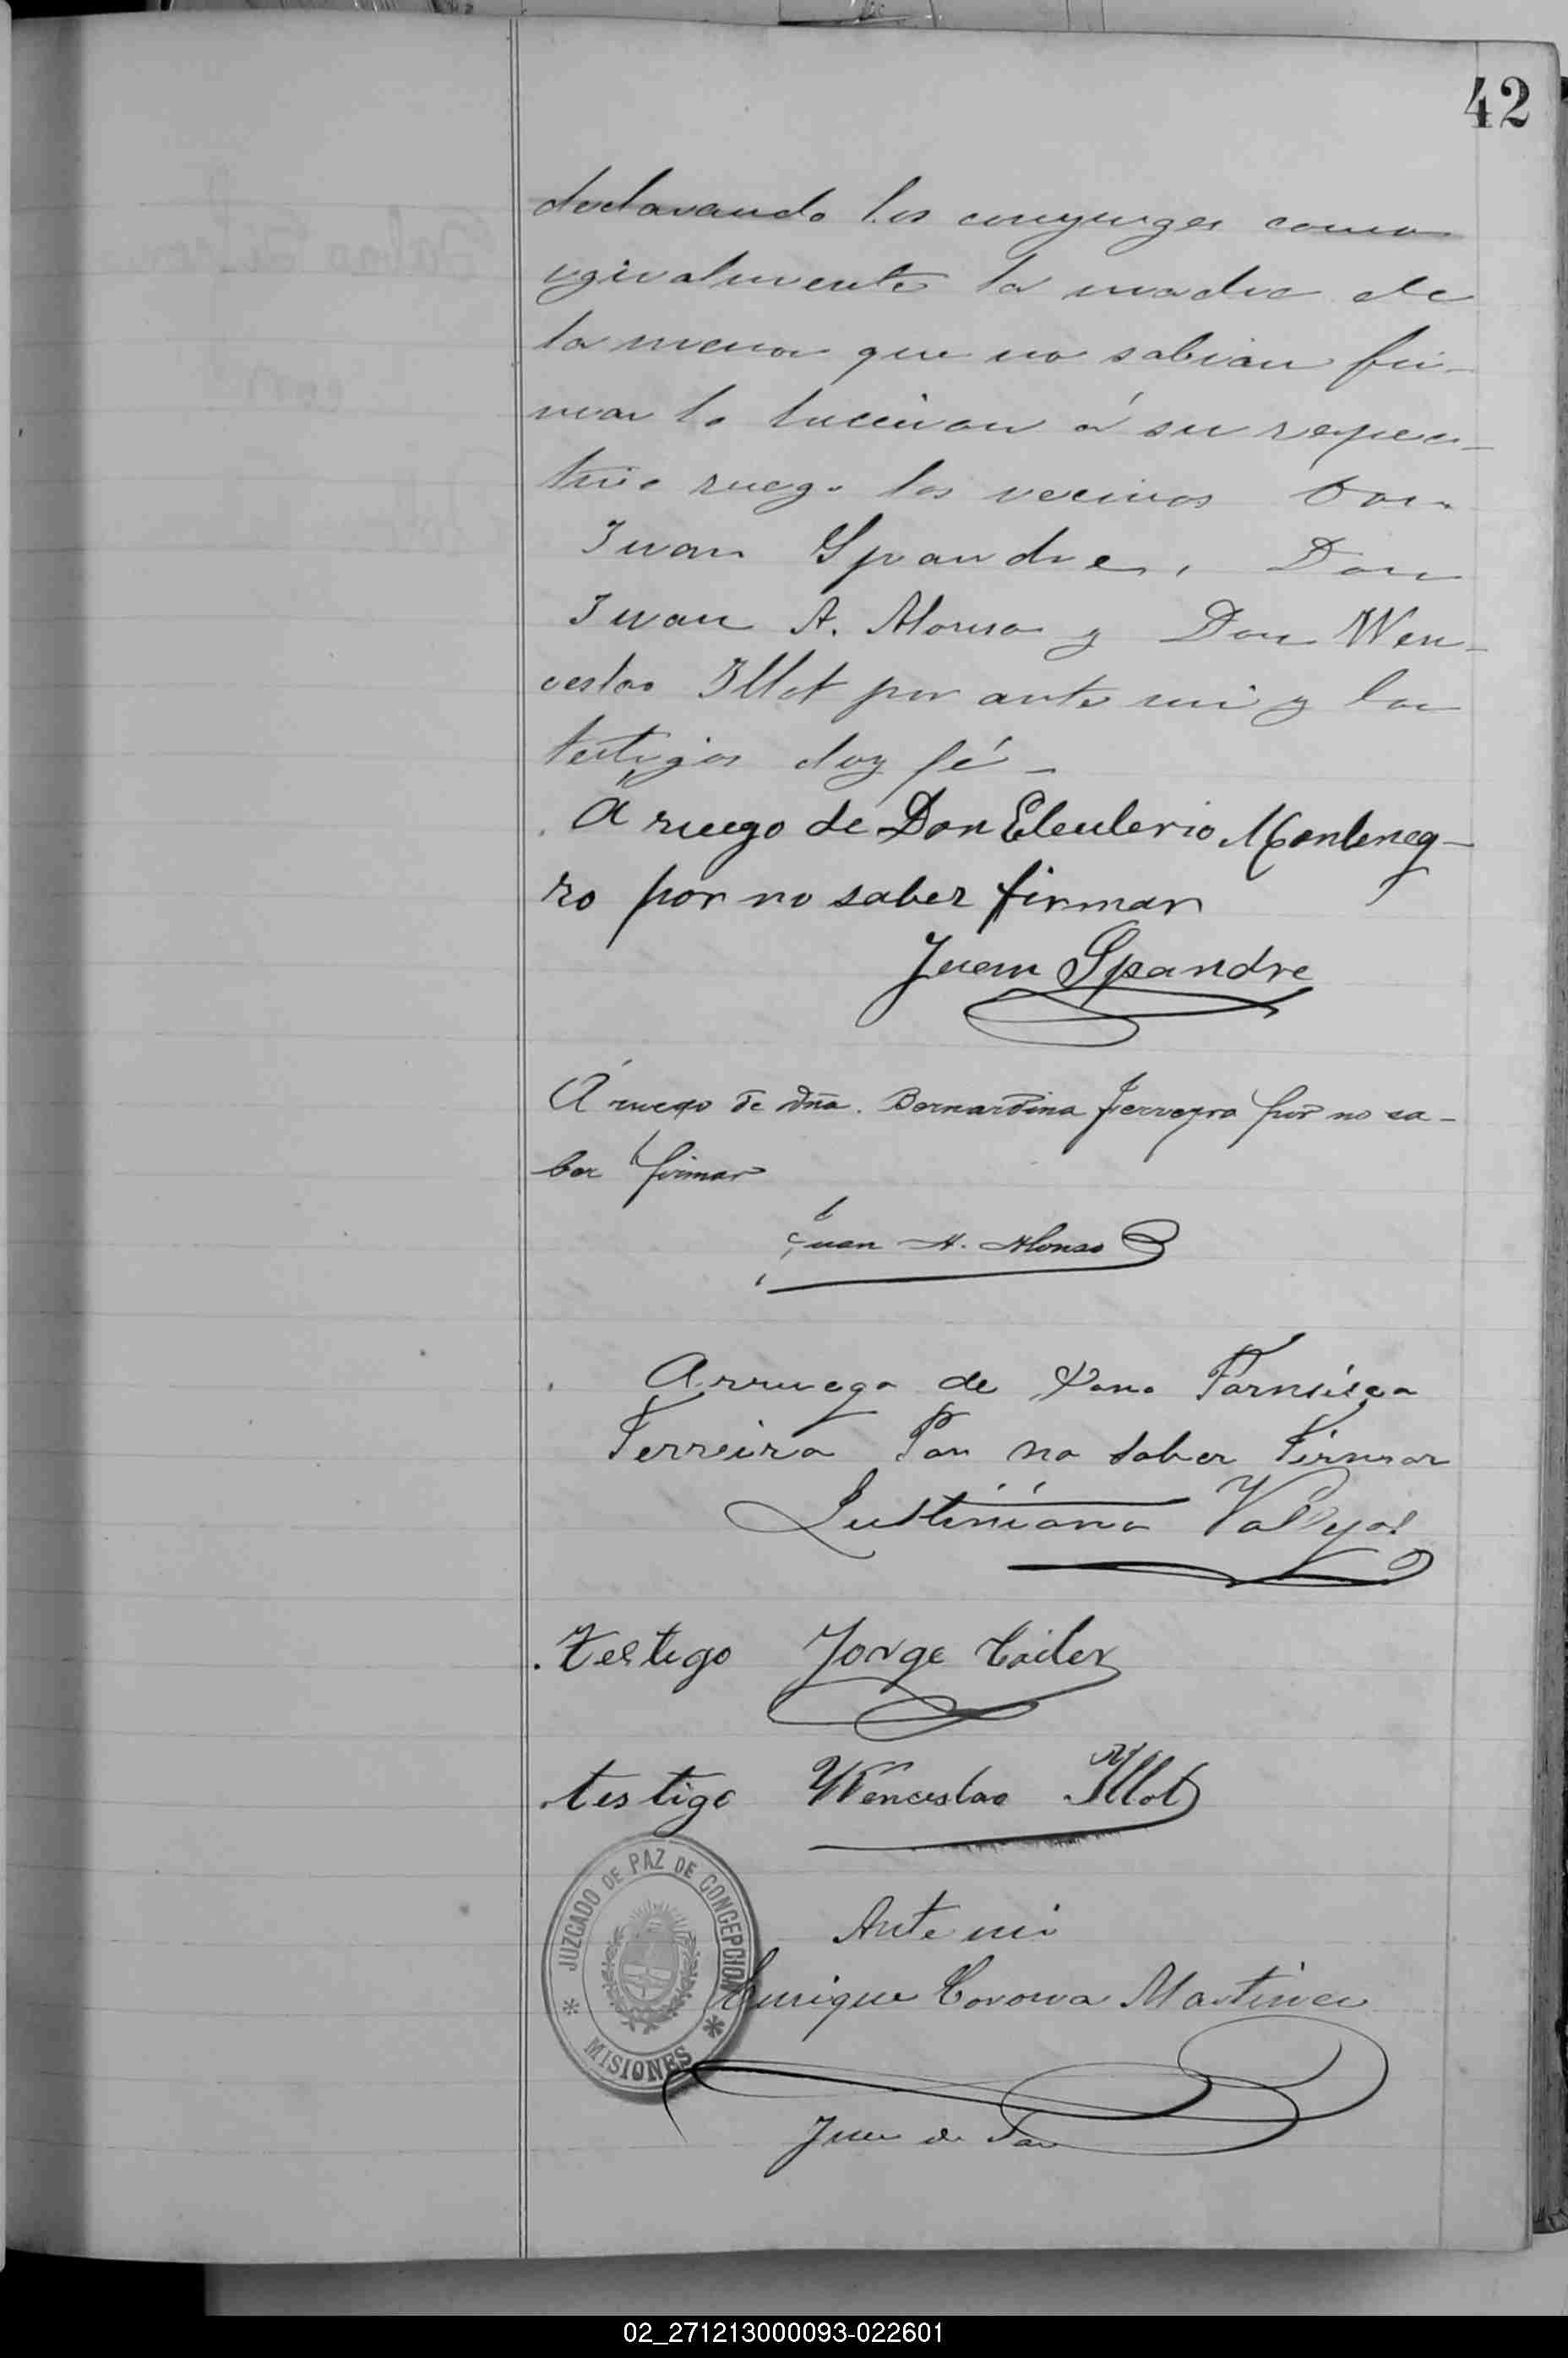 42
declarando los conyuges como
ygualmente la madre de
la menor que no sabian fir-
mar lo hicieron á su respec-
tivo ruego los vecinos Don
Juan Spandre, Don
Juan A. Alonso y Don Wen-
ceslao Illot por ante mi y los
testigos doy fé -
A ruego de Don Eleuterio Monteneg-
ro por no saber firmar
Juan Spandre
Á ruego de Dña. Bernardina Ferreyra por no sa-
ber firmar
Juan A. Alonso
Arruego de Dona Fransisca
Ferreira Por no saber Firmar
Justiniano
Testigo Jorge
testigo Wenceslao Illot
JUZGADO DE PAZ DE CONCEPCION
MISIONES
Ante mi
Enrique Corona Martinez
Juez de Paz
02_271213000093-022601